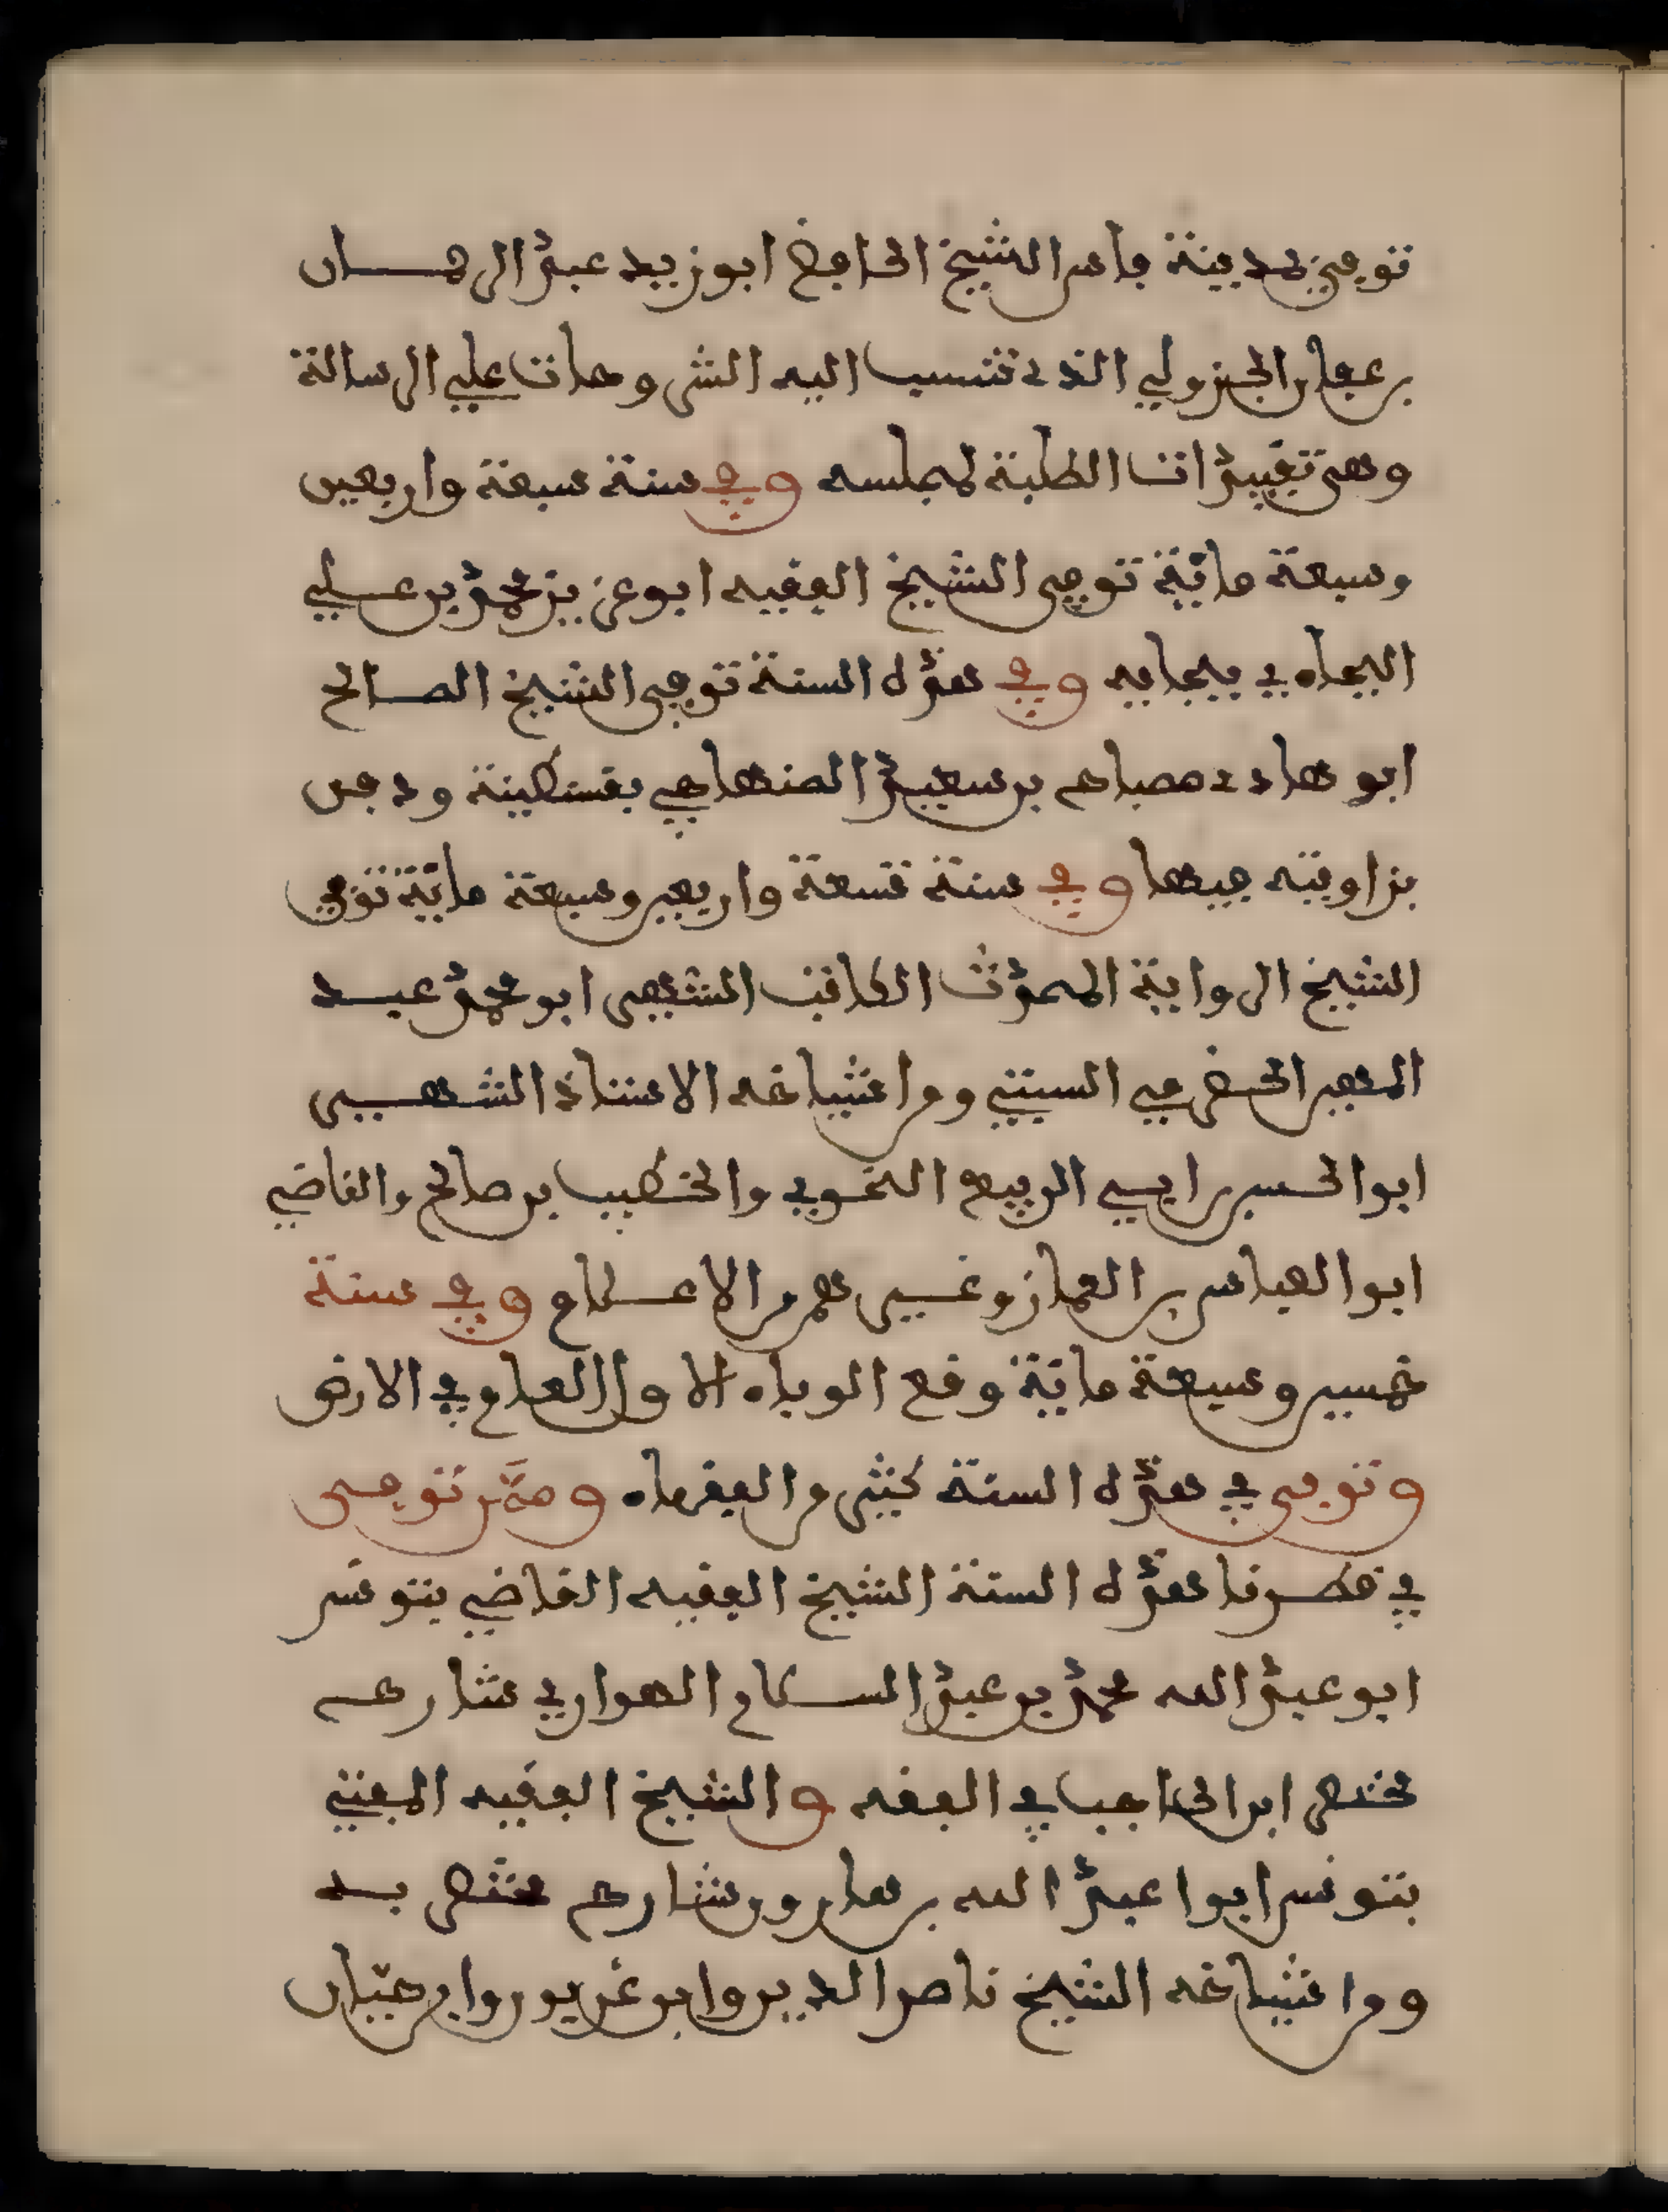 توفي بمدينة فاس الشيخ الحافظ ابو زيد عبد الرحمان
بن عفان الجزولي الذي تنسب اليه الشروحات علي الرسالة
وهي تقييدات الطلبة لمجلسه وفي سنة سبعة واربعين
وسبعة مائة توفى الشيخ الفقيه ابو عزيز محمد بن علي
البجاءي ببجاية وفي هذه السنة توفى الشيخ الصالح
ابو هادي مصباح بن سعيد الصنهاجي بقسنطينة ودفن
بزاويته فيها وفي سنة تسعة واربعين وسبعة مائة توفي
الشيخ الرواية المحدث الكاتب الشهير ابو محمد عبد
المهيمن الحضرمي السبتي ومن اشياخه الاستاذ الشهير
ابو الحسين بن ابي الربيع النحوي والخطيب بن صالح والقاضي
ابو العباس بن الغماز وغيرهم من الاعلام وفي سنة
خمسين وسبعة مائة وقع الوباء الاول العام في الارض
وتوفى في هذه السنة كثير من الفقهاء وممن توفى
في قطرنا هذه السنة الشيخ الفقيه القاضي بتونس
ابو عبد الله محمد بن عبد السلام الهواري شارح
مختصر ابن الحاجب في الفقه والشيخ الفقيه المفتي
بتونس ابوا عبد الله بن هارون شارح مختصر به
ومن اشياخه الشيخ ناصر الدين وابن غريون وابن حيّان